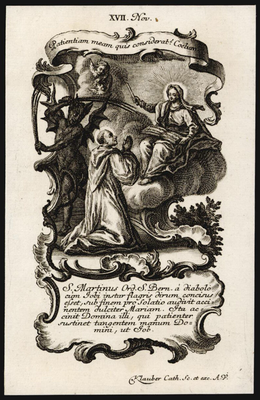 XVII. Nov.
Patientiam meam quis considerat? Coelum
S. Martinus Ord. S. Bern. à diabolo
cum Jobi instar flagris dirum concisus
esset, sub finem pro solatio audivit acci
nentem dulciter Mariam. Ita ac
cinit Domina illi, qui patienter
sustinet tangentem manum Do-
mini, ut Job.
Klauber Cath. Sc. et exc. A.V.